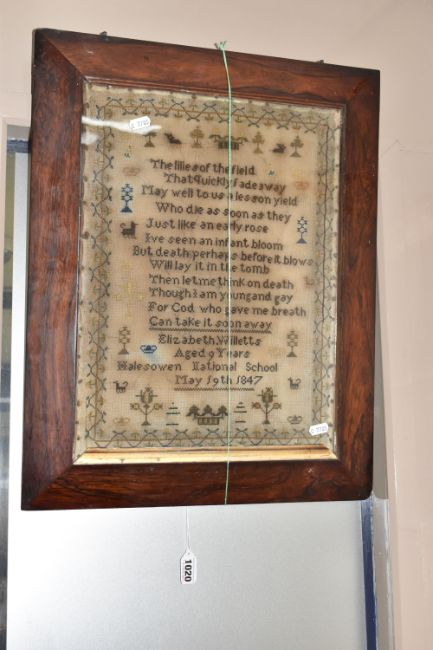 The lilies of the field
That Quickly fade away
May well to us a lesson yield
Who die as soon as they
Just like an early rose
I've seen an infant bloom
But death perhaps before it blows
Will lay it in the tomb
Then let me think on death
Though I am young and gay
For God who gave me breath
Can take it soon away
Elizabeth Willetts
Aged 9 Years
Halesowen National School
May 19th 1847
1020